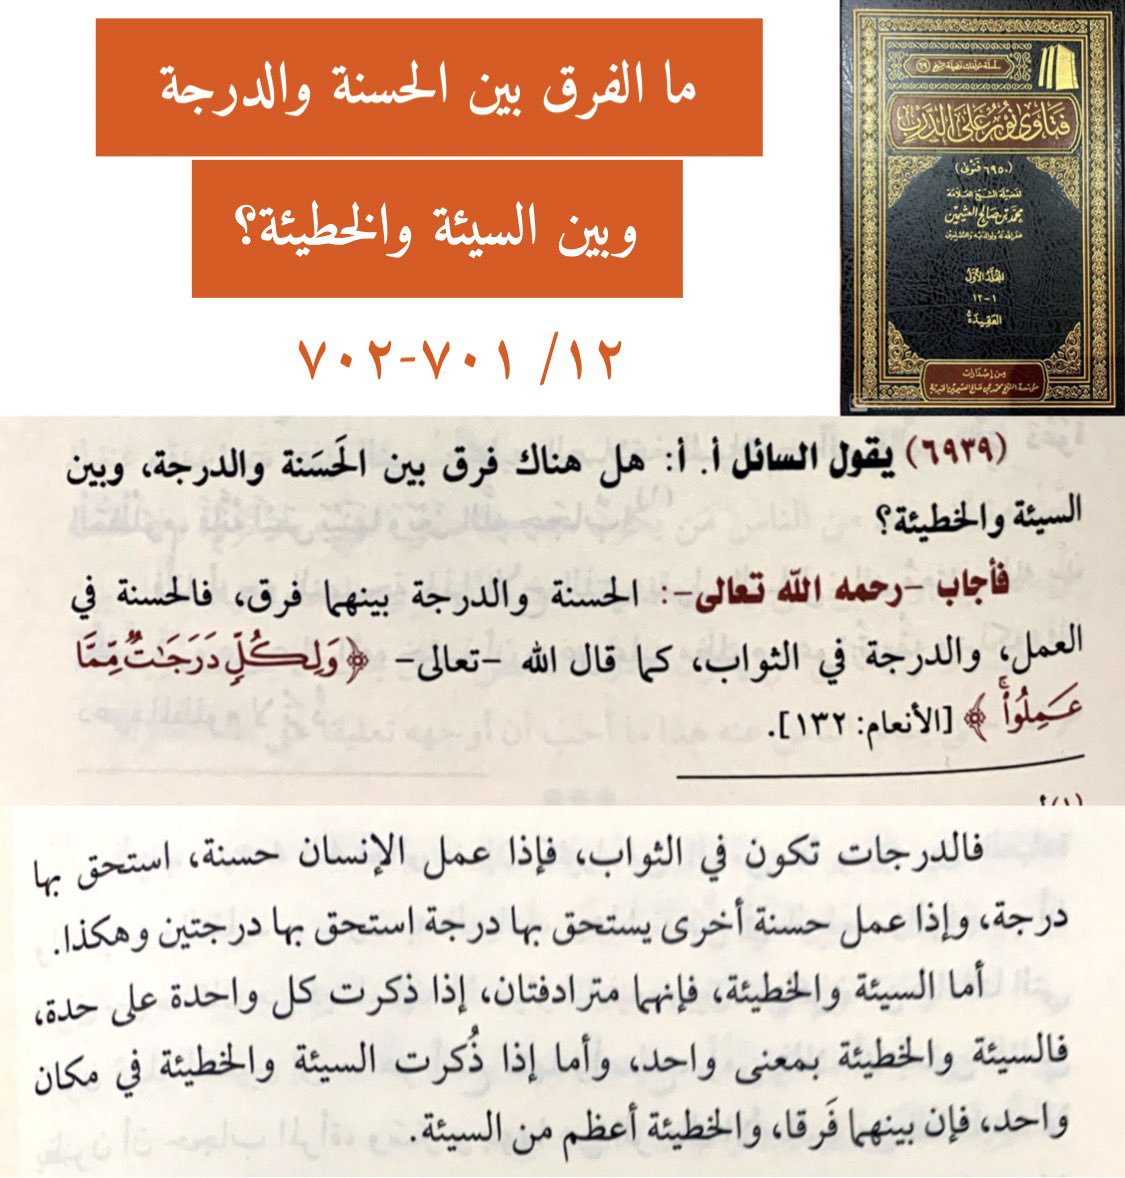 ما الفرق بين الحسنة والدرجة
وبين السيئة والخطيئة؟
١٢/ ٧٠١-٧٠٢
فتاوى نور على الدرب
(٦٩٥٠ فتوى)
لفضيلة الشيخ العلامة
محمد بن صالح العثيمين
غفر الله له ولوالديه وللمسلمين
المجلد الأول
١-١٢
العقيدة
من إصدارات
مؤسسة الشيخ محمد بن صالح العثيمين الخيرية
(٦٩٣٩) يقول السائل أ. أ: هل هناك فرق بين الحَسَنة والدرجة، وبين
السيئة والخطيئة؟
فأجاب -رحمه الله تعالى-: الحسنة والدرجة بينهما فرق، فالحسنة في
العمل، والدرجة في الثواب، كما قال الله -تعالى- ﴿وَلِكُلٍّ دَرَجَٰتٌ مِّمَّا
عَمِلُوا۟ۚ﴾ [الأنعام: ١٣٢].
فالدرجات تكون في الثواب، فإذا عمل الإنسان حسنة، استحق بها
درجة، وإذا عمل حسنة أخرى يستحق بها درجة استحق بها درجتين وهكذا.
أما السيئة والخطيئة، فإنهما مترادفتان، إذا ذكرت كل واحدة على حدة،
فالسيئة والخطيئة بمعنى واحد، وأما إذا ذُكرت السيئة والخطيئة في مكان
واحد، فإن بينهما فَرقا، والخطيئة أعظم من السيئة.